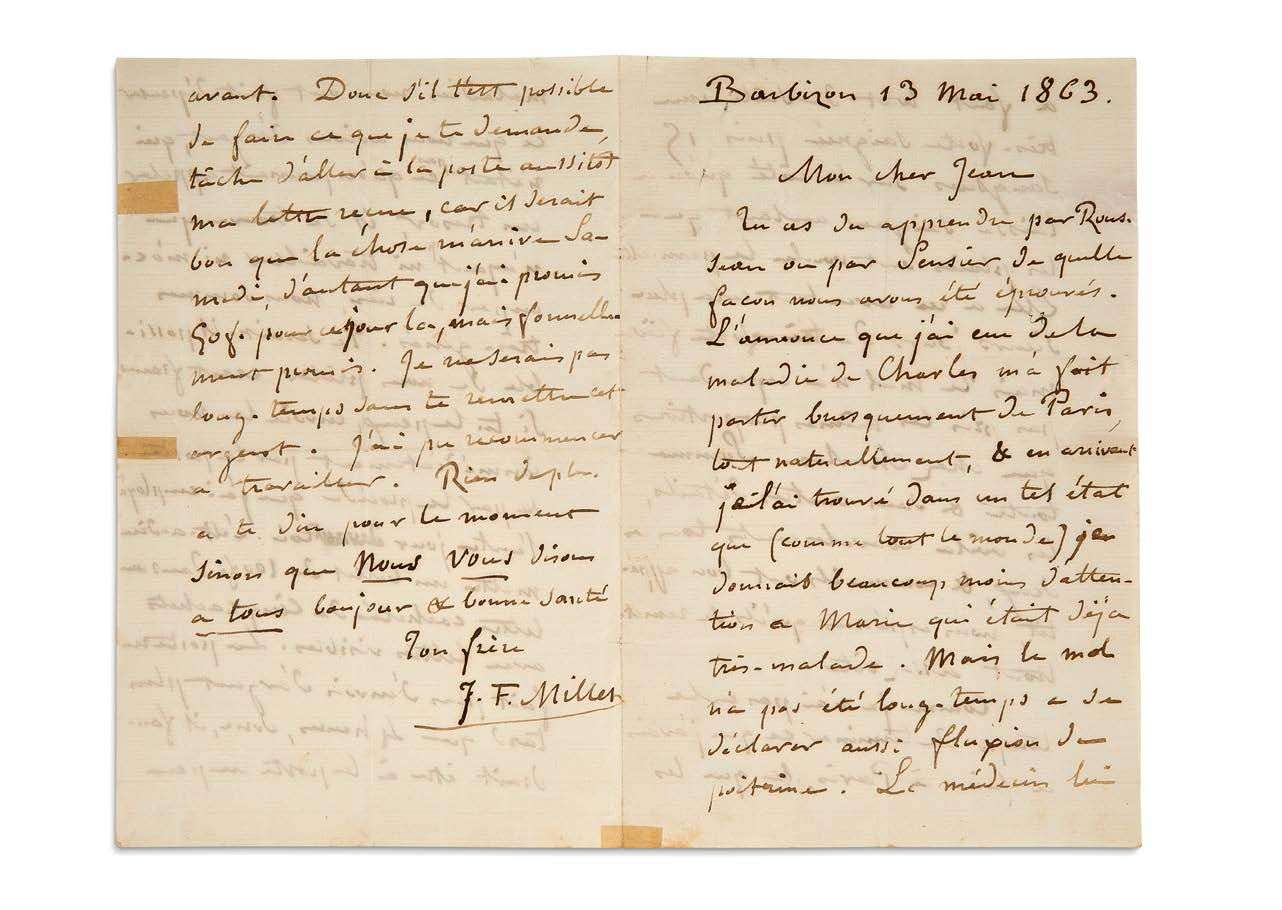 Barbizon 13 Mai 1863.
Mon cher Jean
Tu as du apprendre par Rous-
seau ou par Sensier de quelle
façon nous avons été éprouvés.
L'annonce que j'ai eue de la
maladie de Charles m'a fait
partir brusquement de Paris,
tout naturellement, & en arrivant
je l'ai trouvé dans un tel état
que (comme tout le monde) je
donnais beaucoup moins d'atten-
tion a Marie qui était déja
très-malade. Mais le mal
n'a pas été long-temps a se
déclarer aussi fluxion de
poitrine. Le médecin lui
avant. Donc s'il t'est possible
de faire ce que je te demande,
tâche d'aller à la poste aussitôt
ma lettre reçue, car il serait
bon que la chose m'arrive Sa-
medi, d'autant que j'ai promis
pour ce jour la, mais formelle-
ment promis. Je ne serais pas
long-temps sans te remettre cet
argent. J'ai pu recommencer
a travailler. Rien de plus
a te dire pour le moment
sinon que Nous Vous disons
a tous bonjour & bonne santé
Ton frère
J. F. Millet